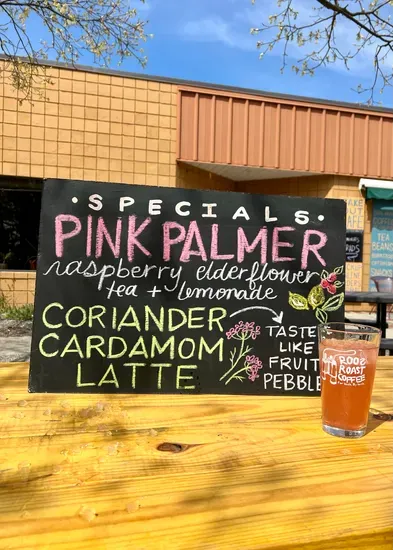 • SPECIALS •
PINK PALMER
raspberry elderflower
tea + lemonade
CORIANDER
CARDAMOM
LATTE
TASTES
LIKE
FRUIT
PEBBLE
ROOS
ROAST
COFFEE
TEA
BEANS